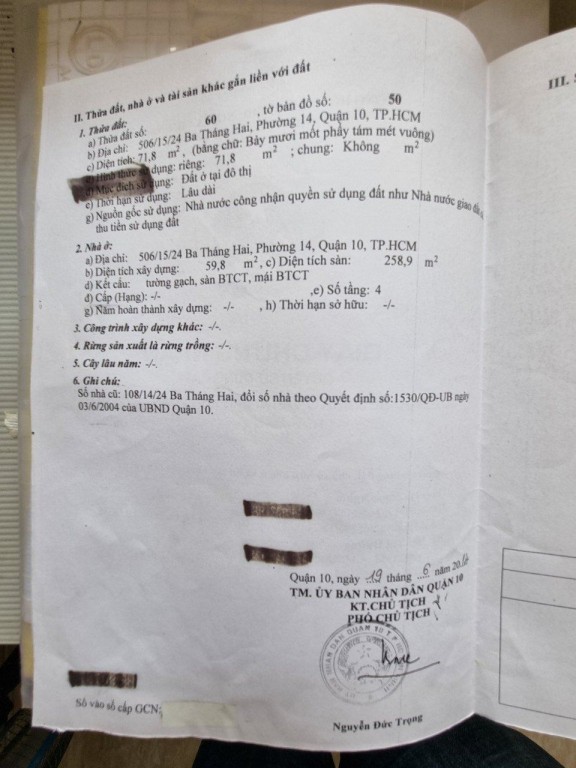 II. Thửa đất, nhà ở và tài sản khác gắn liền với đất
III. S
1. Thửa đất:
a) Thửa đất số: 60 , tờ bản đồ số: 50
b) Địa chỉ: 506/15/24 Ba Tháng Hai, Phường 14, Quận 10, TP.HCM
c) Diện tích: 71,8 m², (bằng chữ: Bảy mươi mốt phẩy tám mét vuông)
d) Hình thức sử dụng: riêng: 71,8 m² ; chung: Không m²
Mục đích sử dụng: Đất ở tại đô thị
e) Thời hạn sử dụng: Lâu dài
g) Nguồn gốc sử dụng: Nhà nước công nhận quyền sử dụng đất như Nhà nước giao đất
thu tiền sử dụng đất
2. Nhà ở:
a) Địa chỉ: 506/15/24 Ba Tháng Hai, Phường 14, Quận 10, TP.HCM
b) Diện tích xây dựng: 59,8 m², c) Diện tích sàn: 258,9 m²
d) Kết cấu: tường gạch, sàn BTCT, mái BTCT
đ) Cấp (Hạng): -/- ,e) Số tầng: 4
g) Năm hoàn thành xây dựng: -/- , h) Thời hạn sở hữu: -/-
3. Công trình xây dựng khác: -/-.
4. Rừng sản xuất là rừng trồng: -/-.
5. Cây lâu năm: -/-.
6. Ghi chú:
Số nhà cũ: 108/14/24 Ba Tháng Hai, đổi số nhà theo Quyết định số:1530/QĐ-UB ngày
03/6/2004 của UBND Quận 10.
Quận 10, ngày 19 tháng 6 năm
TM. ỦY BAN NHÂN DÂN QUẬN 10
KT.CHỦ TỊCH
PHÓ CHỦ TỊCH
Số vào sổ cấp GCN:
Nguyễn Đức Trọng